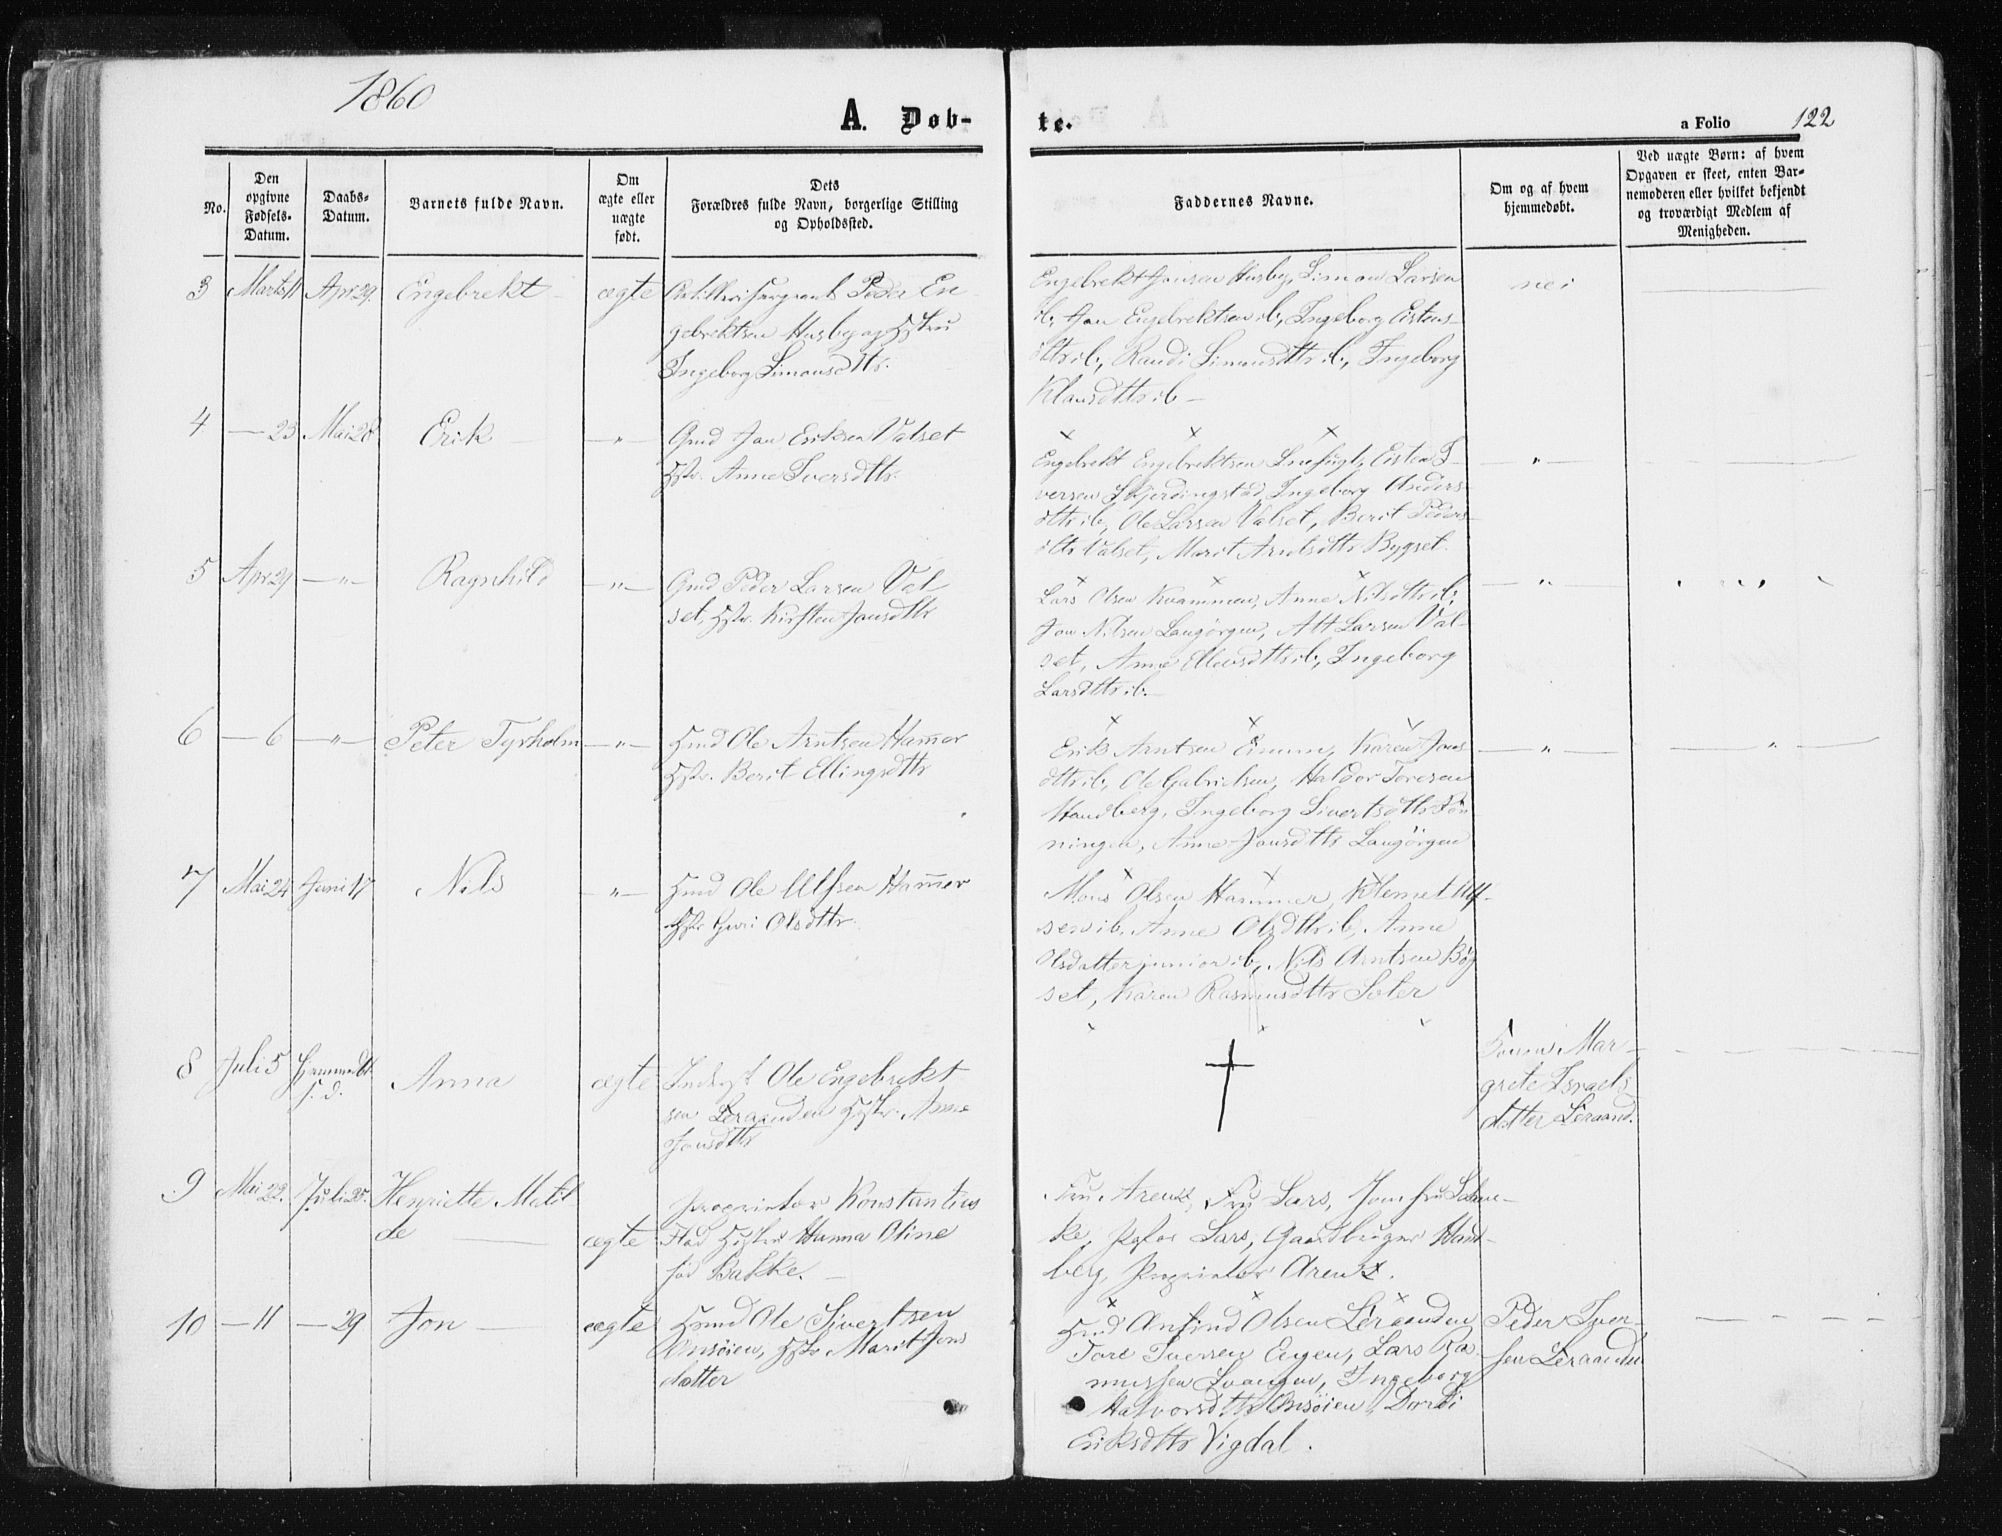 1860
A. Døb-
te.
a Folio 122
No.
Den
opgivne
Fødsels-
Datum.
Daabs-
Datum.
Barnets fulde Navn.
Om
ægte eller
uægte
født.
Dets
Forældres fulde Navn, borgerlige Stilling
og Opholdssted.
Faddernes Navne.
Om og af hvem
hjemmedøbt.
Ved uægte Børn: af hvem
Opgaven er skeet, enten Bar-
nemoderen eller hvilket bekjendt
og troværdigt Medlem af
Menigheden.
3 Marts 11 Apr 29. Engebrekt ægte
Peder En-
gebrektsen Husby og Hstru
Ingeborg Simonsdttr.
Engebrekt Jonsen Husby, Simon Larsen
ib, Jon Engebrektsen ib, Ingeborg Eistens-
dttr ib, Randi Simonsdttr ib, Ingeborg
Klausdttr ib
nei
4 — 23 Mai 28 Erik — " —
Gmd Jon Eriksen Valset
Hstr. Anne Iversdttr.
Engebrekt Engebrektsen Snefugl, Eisten I-
versen Gjerdingstad, Ingeborg Anders-
dttr ib, Ole Larsen Valset, Berit Peders-
dttr Valset, Marit Arntsdttr Bygset.
— " —
5 Apr 29 — " — Ragnhild — " —
Gmd Peder Larsen Val-
set, Hstr. Kirsten Jonsdttr
Lars Olsen Kvammen, Anne Nilsdttr ib,
Jon Nilsen Langørgen, Alt Larsen Val-
set, Anne Ellevsdttr ib, Ingeborg
Larsdttr ib.
— " —
6 — 6 — " — Peter Tyrholm — " —
Hmd Ole Arntsen Hamer
Hstr. Berit Ellingsdttr
Erik Arntsen Eimun, Karen Jons
dttr ib, Ole Gabrielsen, Haldor Toresen
Handberg, Ingeborg Sivertsdttr Føn
ningen, Anne Jonsdttr Langørgen
— " —
— " —
7 Mai 24 Juni 17 Nils — " —
Hmd Ole Ulfsen Hamer
Hstr Guri Olsdttr.
Mons Olsen Hammer, Klemet Ulf-
sen ib, Anne Olsdttr ib, Anne
Olsdatter junior ib, Nils Arntsen Bøg
set, Karen Rasmusdttr Soler
8 Juli 5 Hjemmedbt
s. d. Anna ægte
Inderst Ole Engebrekt
sen Leraanden Hstr. Anne
Jonsdttr
Mar-
grete Israels
datter Leraand.
9 Mai 22. Juli 25. Henriette Matil
de ægte
Proprietær Konstantius
Flod Hustru Hanna Oline
fød Bakke.
Fru Arentz, Fru Lars, Jomfru
ke, Lars, Gaardbruger Hand-
berg, Proprietær Arentz.
10 — 11 — 29 Jon ægte
Hmd Ole Sivertsen
Onsøien, Hstr Marit Jons
datter
Hmd Anfind Olsen Leraanden
Tore Iversen Engen, Lars Ra-
mussen Ingeborg
Halvorsdttr Onsøien, Dordi
Eriksdttr Vigdal.
Peder Iver-
sen Leraanden